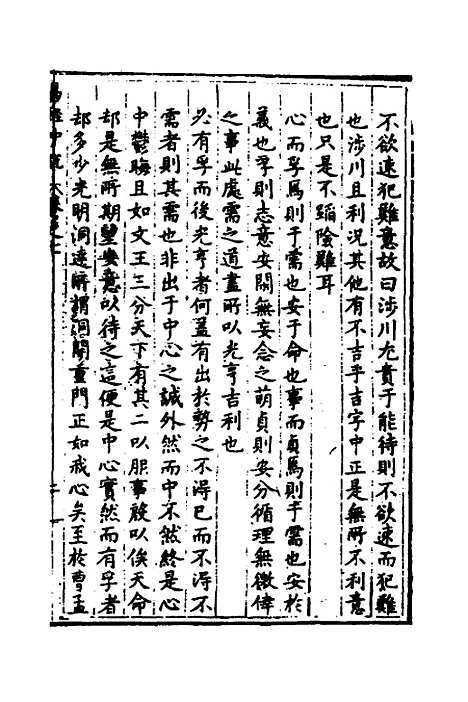 不欲速犯難意故曰涉川尤貴于能待則不欲速而犯難
也涉川且利況其他有不吉乎吉字中正是無所不利意
也只是不䧟險難耳
心而孚焉則于需也安于命也事而貞焉則于需也安於
義也孚則志意安閒無妄念之萌貞則安分循理無徼倖
之事此處需之道盡所以光亨吉利也
必有孚而後光亨者何蓋有出於勢之不得已而不得不
需者則其需也非出于中心之誠外然而中不然終是心
中鬱晦且如文王三分天下有其二以服事殷以俟天命
却是無所期望安意以待之這便是中心實然而有孚者
却多少光明洞達所謂洞開重門正如我心矣至於曹孟